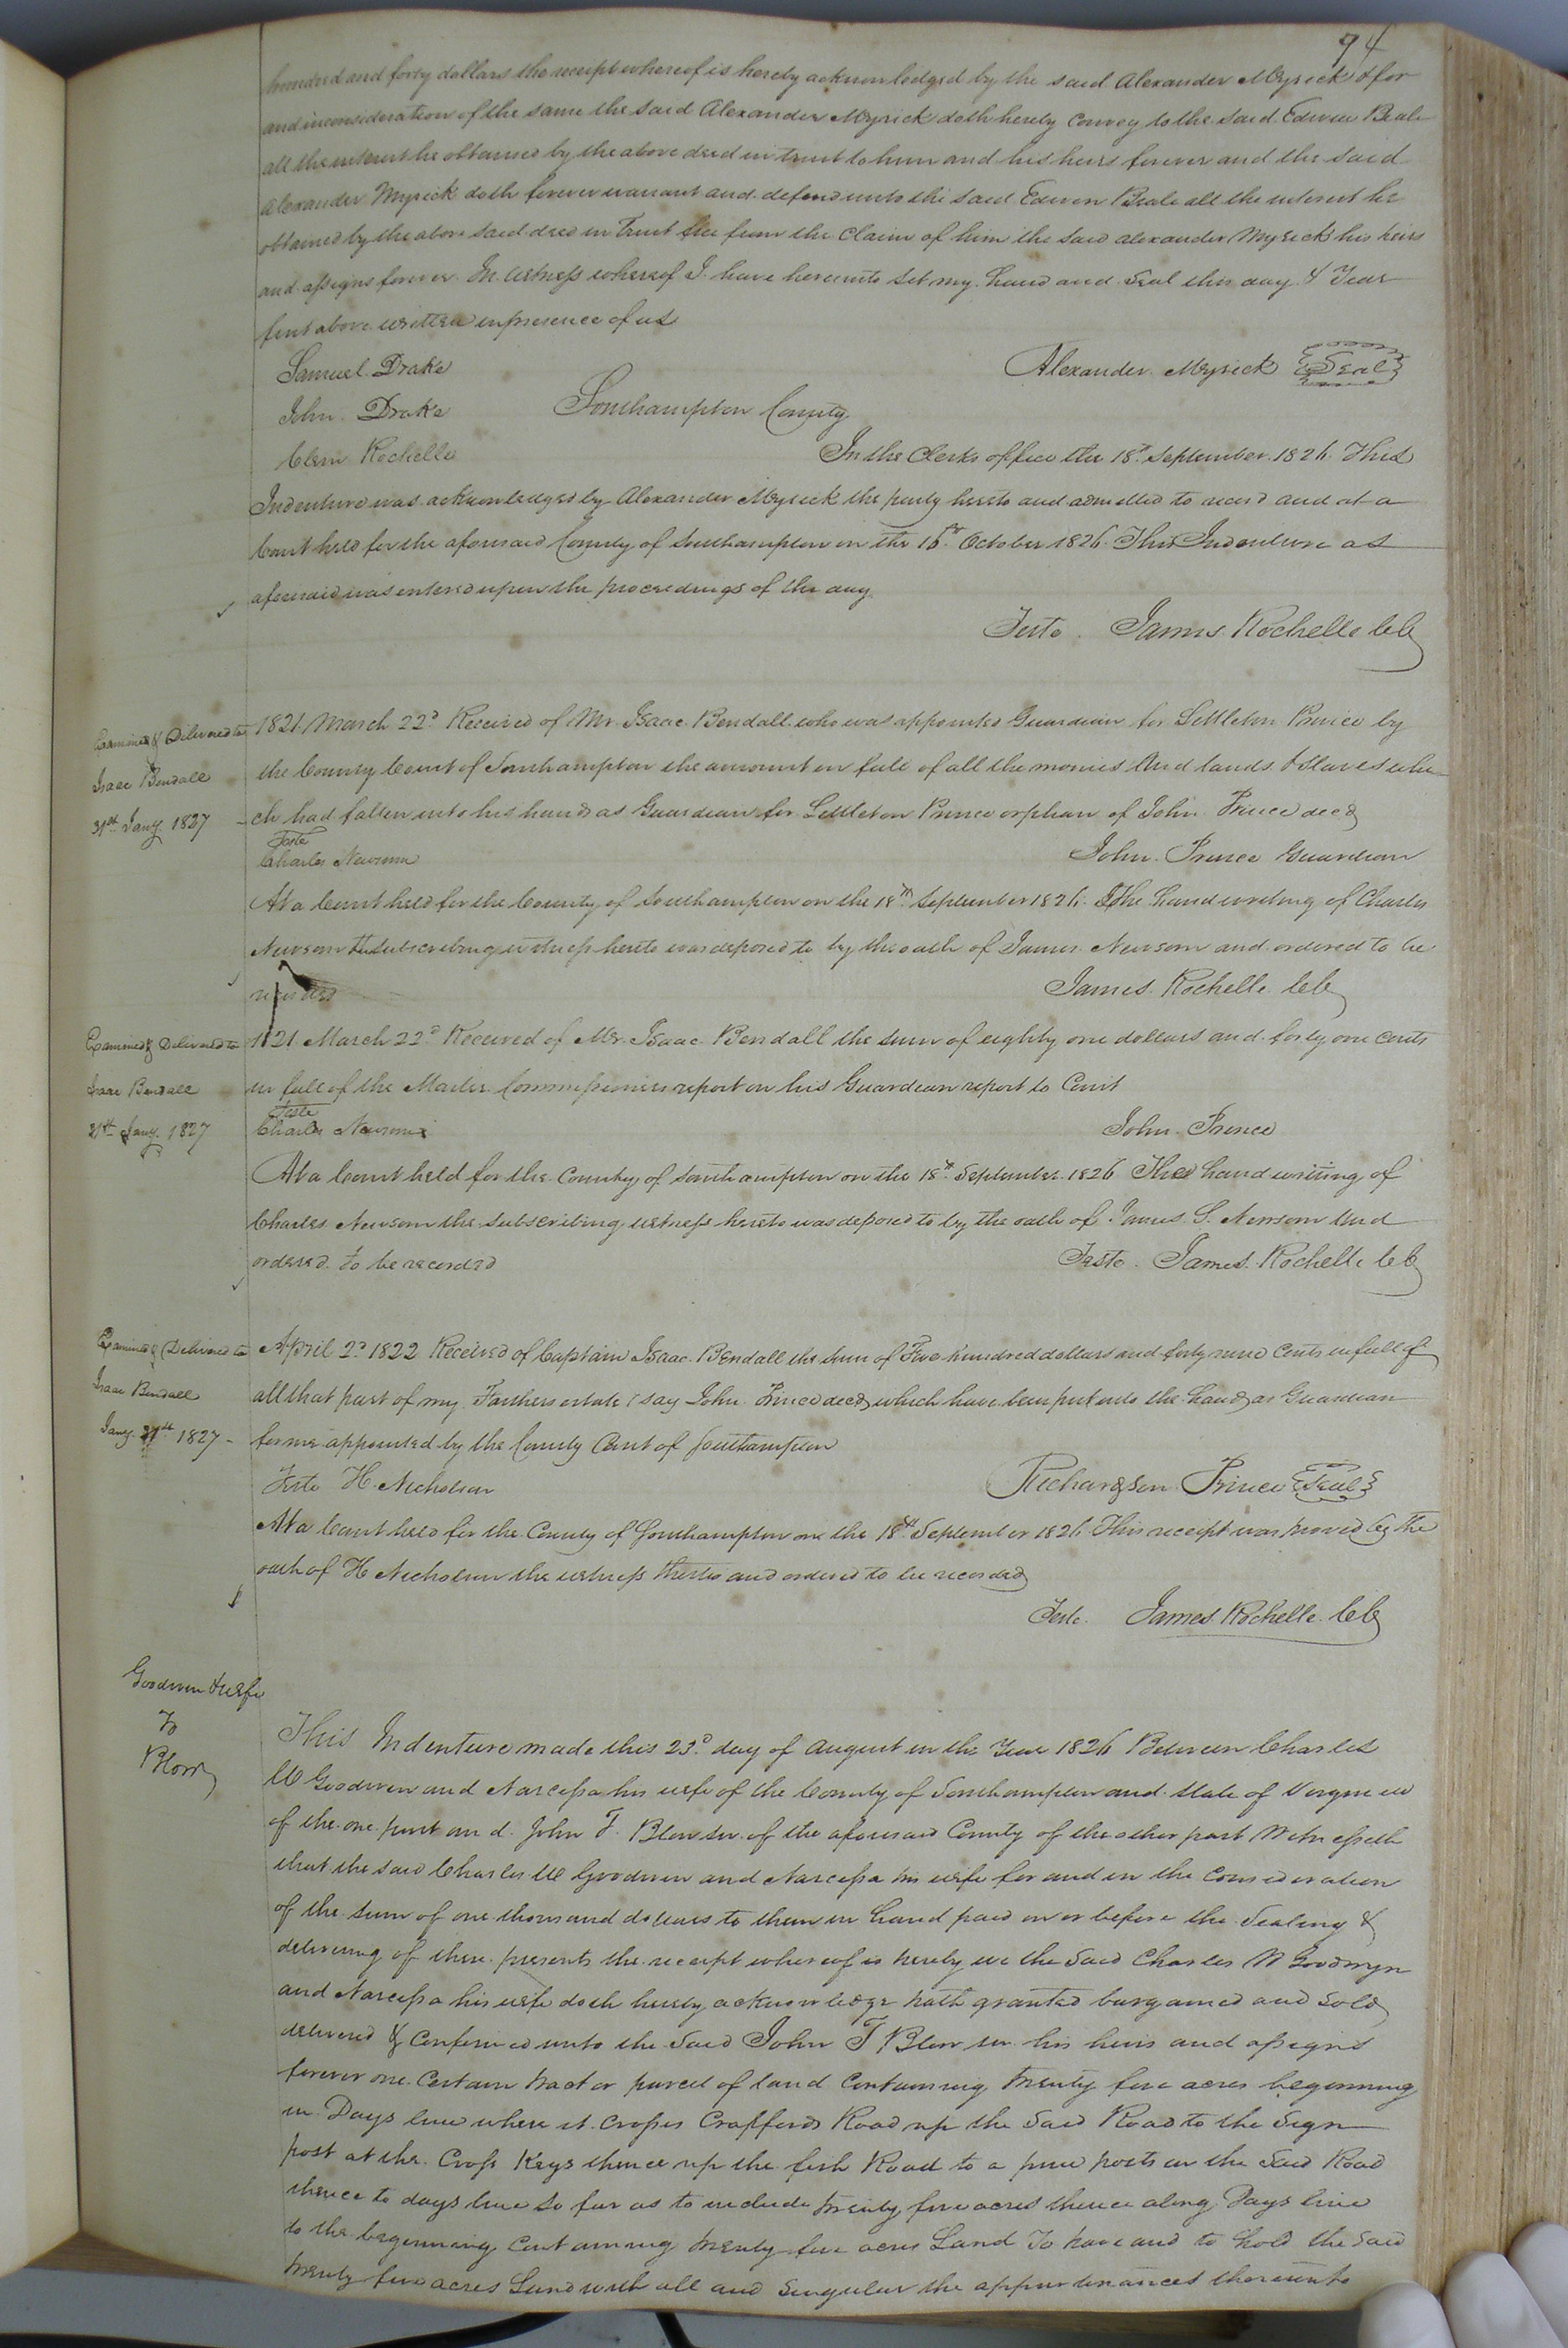 94
hundred and forty dollars the receipt whereof is hereby acknowledged by the said Alexander Myrick & for
and inconsideration of the same the said Alexander Myrick doth hereby Convey to the said Edwin Beale
all the interest he obtained by the above deed in trust to him and his heirs forever and the said
Alexander Myrick doth forever warrant and defend unto the said Edwin Beale all the interest he
obtained by the above said deed in Trust free from the Claim of him the said Alexander Myrick his heirs
and assigns forever In witness whereof I have hereunto set my hand and Seal this day & Year
first above written in presence of us
Samuel Drake
Alexander Myrick Seal
John Drake
Southampton County
Clem Rochelle
In the Clerks office the 18th September 1826 This
Indenture was acknowledged by Alexander Myrick the party hereto and admitted to record and at a
Court held for the aforesaid County of Southampton on the 16th October 1826 This Indenture as
aforesaid was entered upon the proceedings of the day
Teste James Rochelle CC
Examined & Delivered to
Isaac Bendall
31st Jany 1827
1821 March 22d Received of Mr. Isaac Bendall who was appointed Guardian for Littleton Prince by
the County Court of Southampton the amount in full of all the monies And lands & Slaves whi
ch had fallen into his hands as Guardian for Littleton Prince orphan of John Prince decd
Teste
Charles Newsom
John Prince Guardian
At a Court held for the County of Southampton on the 18th September 1826 The handwriting of Charles
Newsom the subscribing witness hereto was deposed to by the oath of James Newsom and ordered to be
recorded
James Rochelle CC
Examined & Delivered to
Isaac Bendall
31st Jany. 1827
1821 March 22d Received of Mr. Isaac Bendall the sum of eighty one dollars and forty one cents
in full of the Master Commissioners report on his Guardian report to Court
Teste
Charles Newsom
John Prince
At a Court held for the County of Southampton on the 18th September 1826 The handwriting of
Charles Newsom the subscribing witness hereto was deposed to by the oath of James S. Newsom And
ordered to be recorded
Teste James Rochelle CC
Examined & Delivered to
Isaac Bendall
Jany 31st 1827
April 2d 1822 Received of Captain Isaac Bendall the sum of Five hundred dollars and forty nine Cents in full of
all that part of my Farthers estate (say John Prince decd which have been put into the hands as Guardian
for me appointed by the County Court of Southampton
Teste H. Nicholson
Richardson Prince Seal
At a Court held for the County of Southampton on the 18th September 1826 This receipt was proved by the
oath of H Nicholson the witness thereto and ordered to be recorded
Teste James Rochelle CC
Goodwin & wife
To
Blow
This Indenture made this 23d day of August in the Year 1826 Between Charles
W Goodwin and Narcissa his wife of the County of Southampton and State of Virginia
of the one part and John T. Blow sr. of the aforesaid County of the other part Witnesseth
that the said Charles W Goodwin and Narcissa his wife for and in the Consideration
of the sum of one thousand dollars to them in hand paid on or before the Sealing &
delivering of these presents the receipt whereof is hereby we the Said Charles W Goodwyn
and Narcissa his wife doth hereby acknowledge hath granted bargained and Sold
delivered & Confirmed unto the Said John T Blow sr his heirs and assigns
forever one Certain tract or parcel of land Containing twenty five acres beginning
in Days line where it Crosses Crafffords Road up the Said Road to the Sign
post at the Cross Keys thence up the fish Road to a pine posts on the Said Road
thence to days line so far as to include twenty five acres thence along Days line
to the beginning Containing twenty five acres Land To have and to hold the Said
twenty five acres Land with all and Singular the appurtenances thereunto